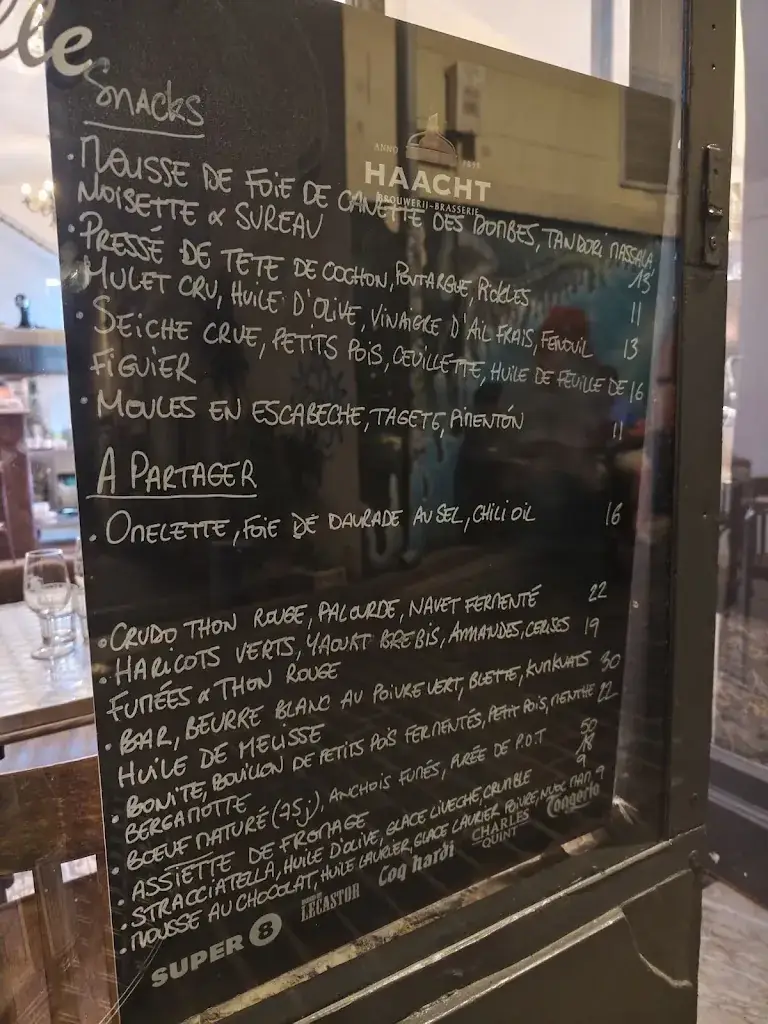 lle
Snacks
ANNO 1898
HAACHT
BROUWERIJ-BRASSERIE
• MOUSSE DE FOIE DE CANETTE DES DOMBES, TANDORI MASSALA,
NOISETTE & SUREAU 13
• PRESSÉ DE TETE DE COCHON, POUTARGUE, PICKLES 11
MULET CRU, HUILE D'OLIVE, VINAIGRE D'AIL FRAIS, FENOUIL 13
• SEICHE CRUE, PETITS POIS, OEUILLETTE, HUILE DE FEUILLE DE 16
FIGUIER
• MOULES EN ESCABECHE, TAGETE, PIMENTÓN 11
A PARTAGER
• OMELETTE, FOIE DE DAURADE AU SEL, CHILI OIL 16
• CRUDO THON ROUGE, PALOURDE, NAVET FERMENTÉ 22
• HARICOTS VERTS, YAOURT BREBIS, AMANDES, CERISES 19
FUMÉES & THON ROUGE
• BAR, BEURRE BLANC AU POIVRE VERT, BLETTE, KUMKUATS 30
HUILE DE MELISSE
• BONITE, BOUILLON DE PETITS POIS FERMENTÉS, PETIT POIS, MENTHE 22
BERGAMOTTE
• BŒUF MATURÉ (75j), ANCHOIS FUMÉS, PURÉE DE P.D.T 50
• ASSIETTE DE FROMAGE 18
• STRACCIATELLA, HUILE D'OLIVE, GLACE LIVECHE, CRUMBLE 9
• MOUSSE AU CHOCOLAT, HUILE LAURIER, GLACE LAURIER, POIVRE, 9
SUPER 8
LECASTOR
Coq hardi
CHARLES QUINT
Tongerlo